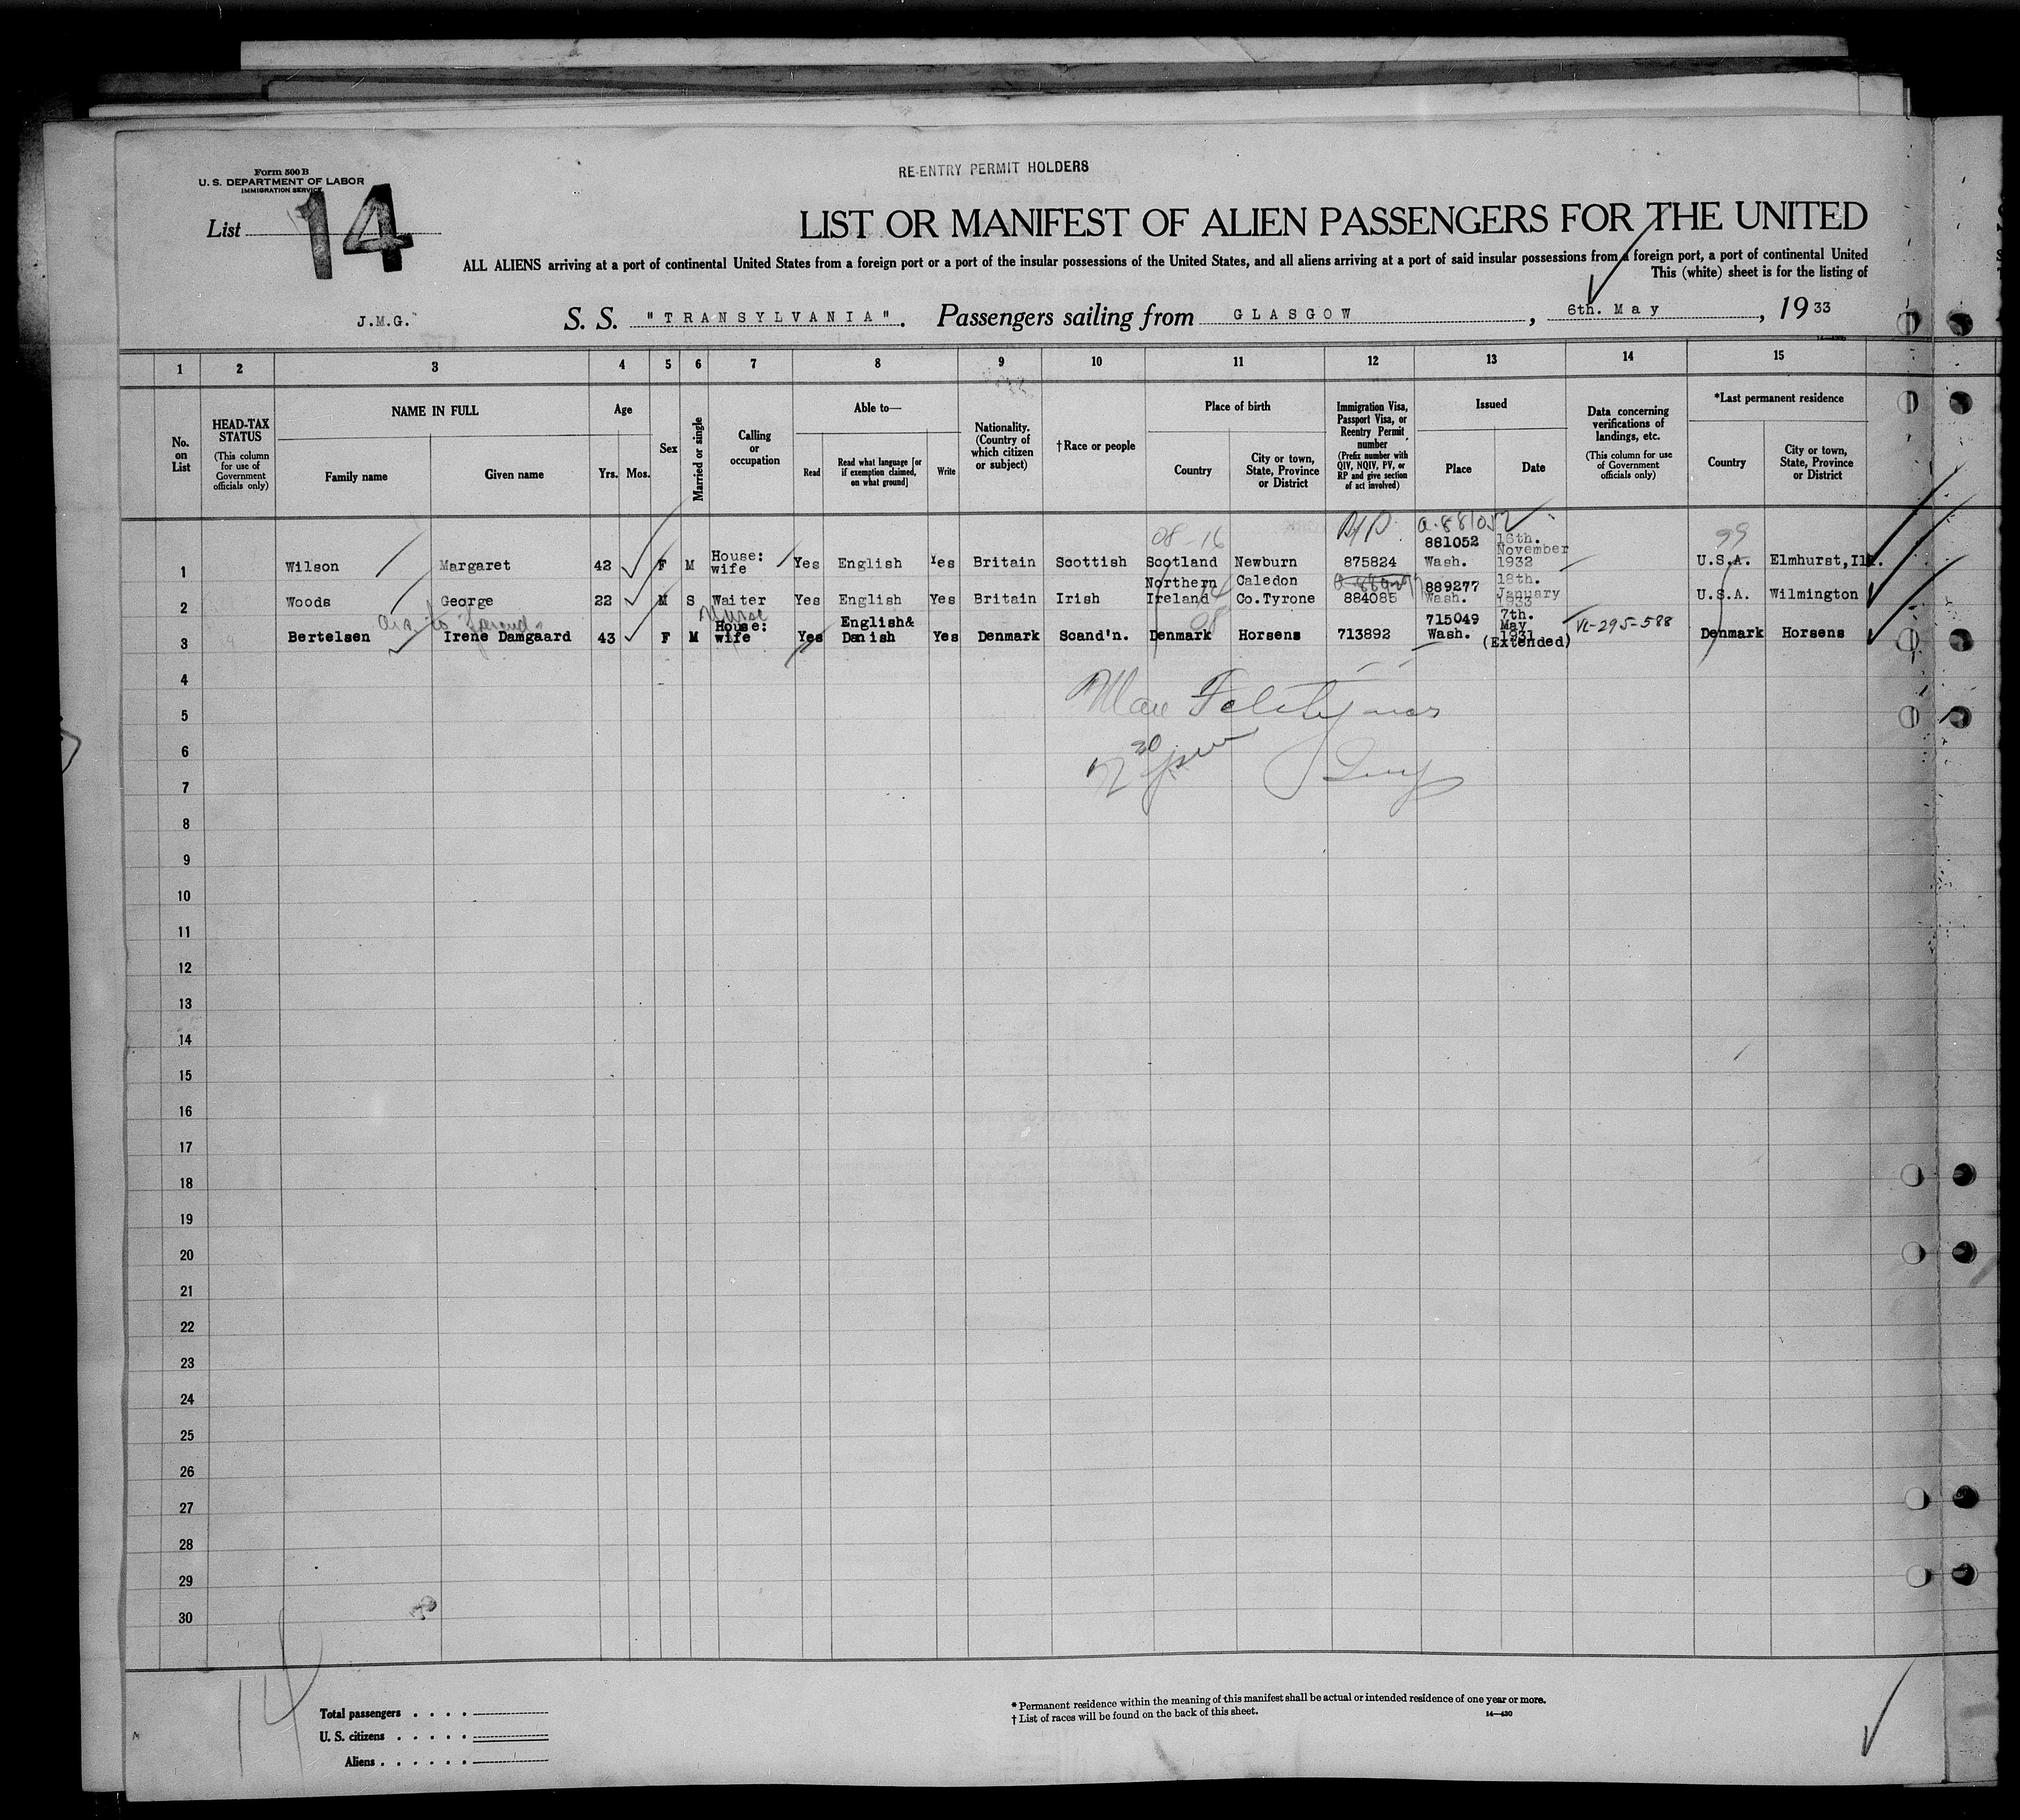 RE-ENTRY PERMIT HOLDERS
Form 500 B
U. S. DEPARTMENT OF LABOR
IMMIGRATION SERVICE
List 14
LIST OR MANIFEST OF ALIEN PASSENGERS FOR THE UNITED
ALL ALIENS arriving at a port of continental United States from a foreign port or a port of the insular possessions of the United States, and all aliens arriving at a port of said insular possessions from a foreign port, a port of continental United
This (white) sheet is for the listing of
J.M.G. S. S. "TRANSYLVANIA". Passengers sailing from GLASGOW, 6th. May, 1933
1 2 3 4 5 6 7 8 9 10 11 12 13 14 15
No. on List
HEAD-TAX STATUS
(This column for use of Government officials only)
NAME IN FULL
Family name
Given name
Age
Yrs. Mos.
Sex
Married or single
Calling or occupation
Able to—
Read
Read what language [or if exemption claimed, on what ground]
Write
Nationality. (Country of which citizen or subject)
† Race or people
Place of birth
Country
City or town, State, Province or District
Immigration Visa, Passport Visa, or Reentry Permit number
(Prefix number with QIV, NQIV, PV, or RP and give section of act involved)
Issued
Place
Date
Data concerning verifications of landings, etc.
(This column for use of Government officials only)
*Last permanent residence
Country
City or town, State, Province or District
08-16 a-881052 99
1 Wilson Margaret 42 F M House: wife Yes English Yes Britain Scottish Scotland Newburn 875824 881052 Wash. 16th. November 1932 U.S.A. Elmhurst, Ill.
2 Woods George 22 M S Waiter Yes English Yes Britain Irish Northern Ireland Caledon Co.Tyrone 884085 889277 Wash. 18th. January 1933 U.S.A. Wilmington
Nurse
3 Bertelsen Irene Damgaard 43 F M House: wife Yes English& Danish Yes Denmark Scand'n. Denmark Horsens 713892 715049 Wash. 7th. May 1931 (Extended) VL-295-588 Denmark Horsens
4
5
6
7
8
9
10
11
12
13
14
15
16
17
18
19
20
21
22
23
24
25
26
27
28
29
30
14
Total passengers
U. S. citizens
Aliens
* Permanent residence within the meaning of this manifest shall be actual or intended residence of one year or more.
† List of races will be found on the back of this sheet.
14—430